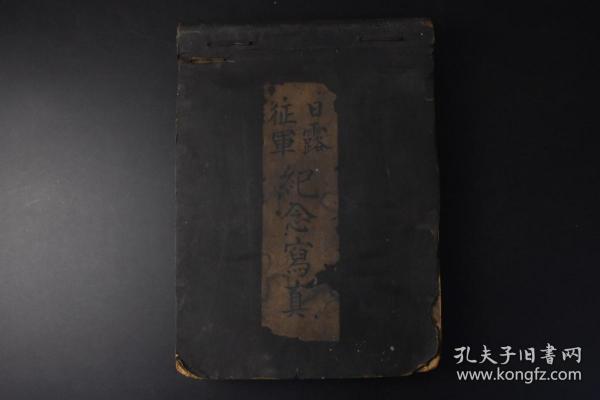 日露
征軍
紀念寫真
孔夫子旧書网
www.kongfz.com